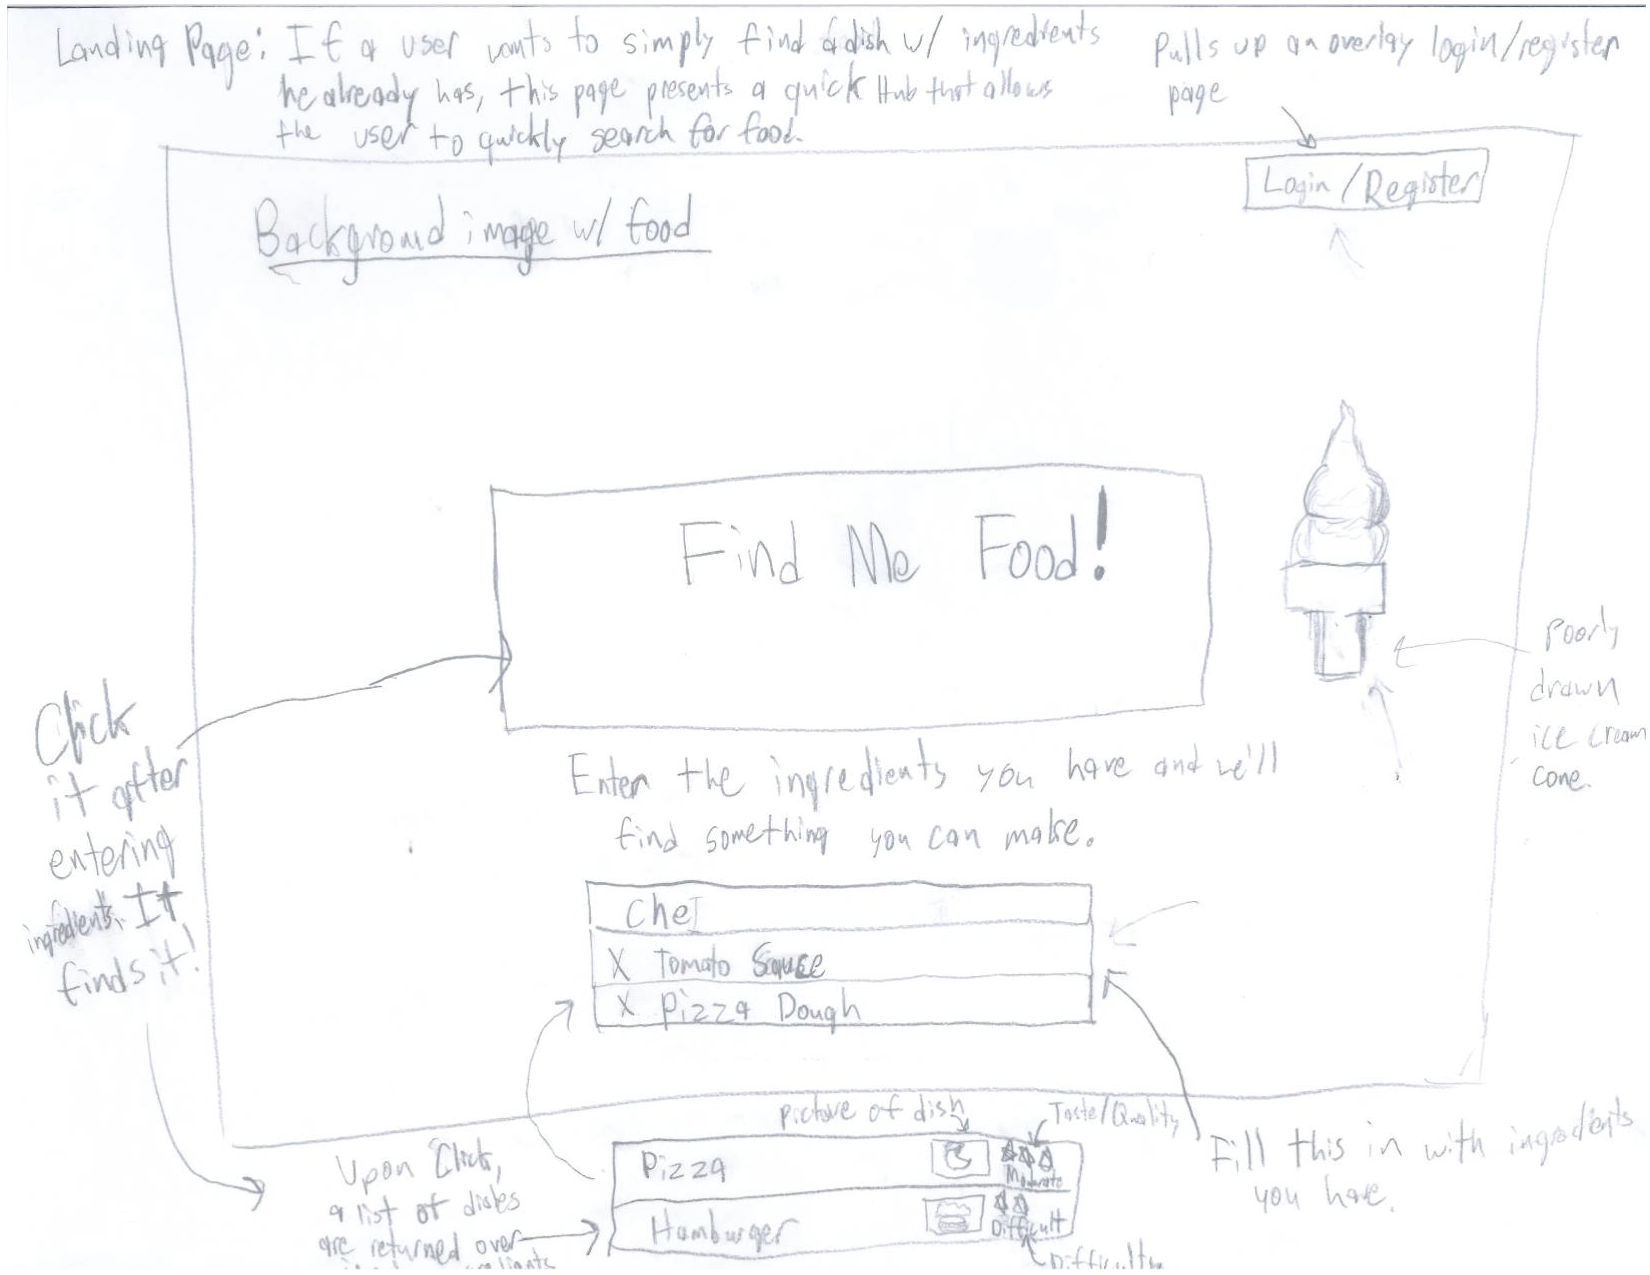 Landing Page: If a user wants to simply find a dish w/ ingredients
he already has, this page presents a quick Hub that allows
the user to quickly search for food.
Pulls up an overlay login/register
page
Login/Register
Background image w/ food
Find Me Food!
Poorly
drawn
ice cream
cone.
Click
it after
entering
ingredients. It
finds it!
Enter the ingredients you have and we'll
find something you can make.
Che
X Tomato Sauce
X Pizza Dough
picture of dish
Taste/Quality
Fill this in with ingredients
you have.
Upon Click,
a list of dishes
are returned over
Pizza
Moderate
Hamburger
Difficult
Difficulty